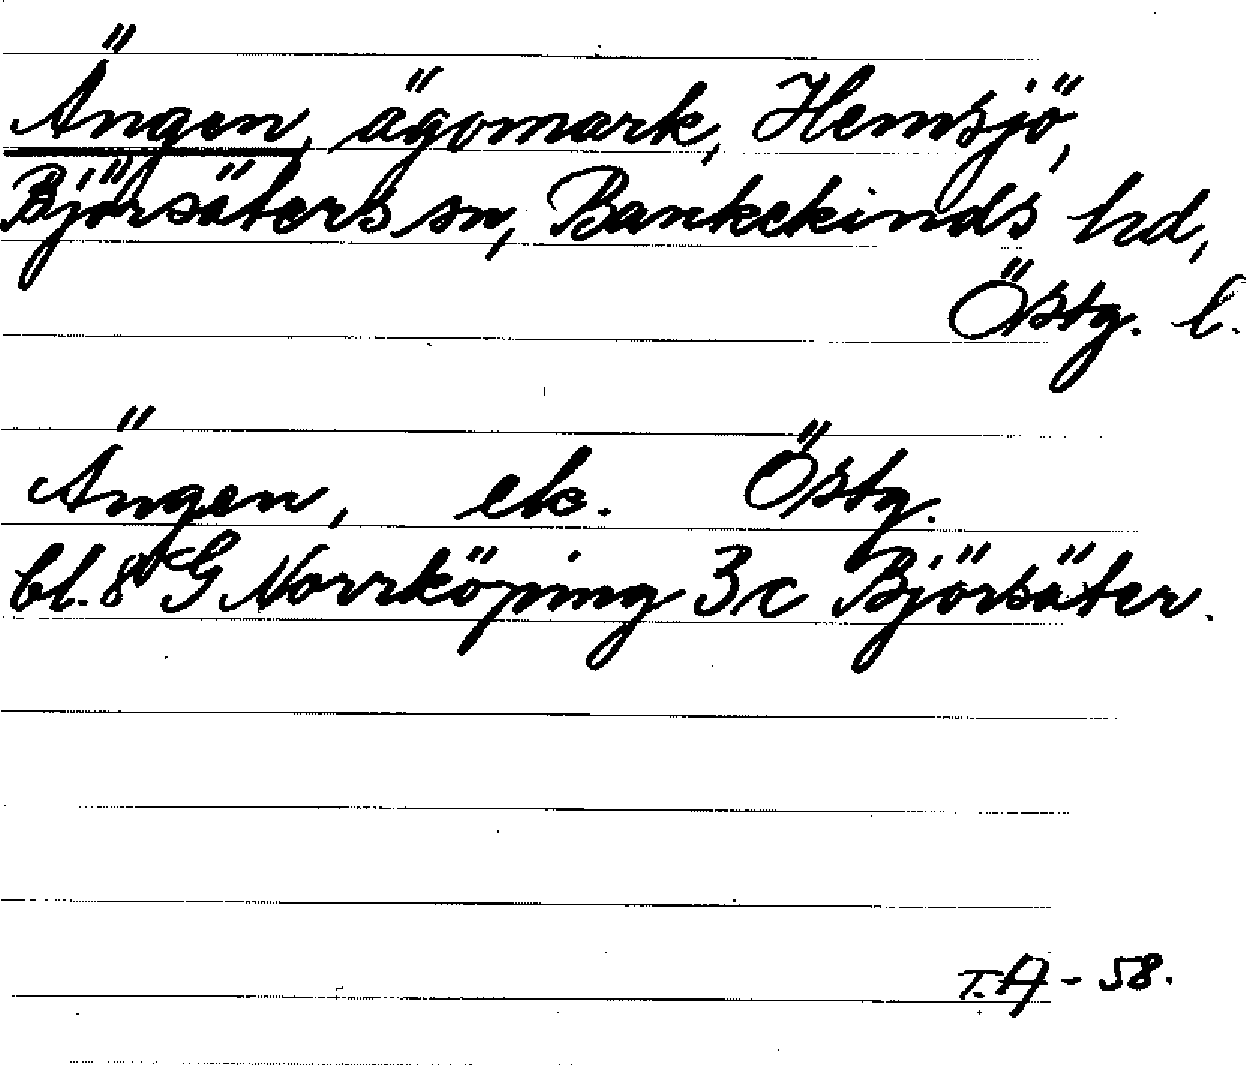 Ängen, ägomark, Hemsjö,
Björsäters sn, Bankekinds hd,
Östg. l.
Ängen, ek. Östg.
bl. 8 G Norrköping 3c Björsäter.
T.A - 58.